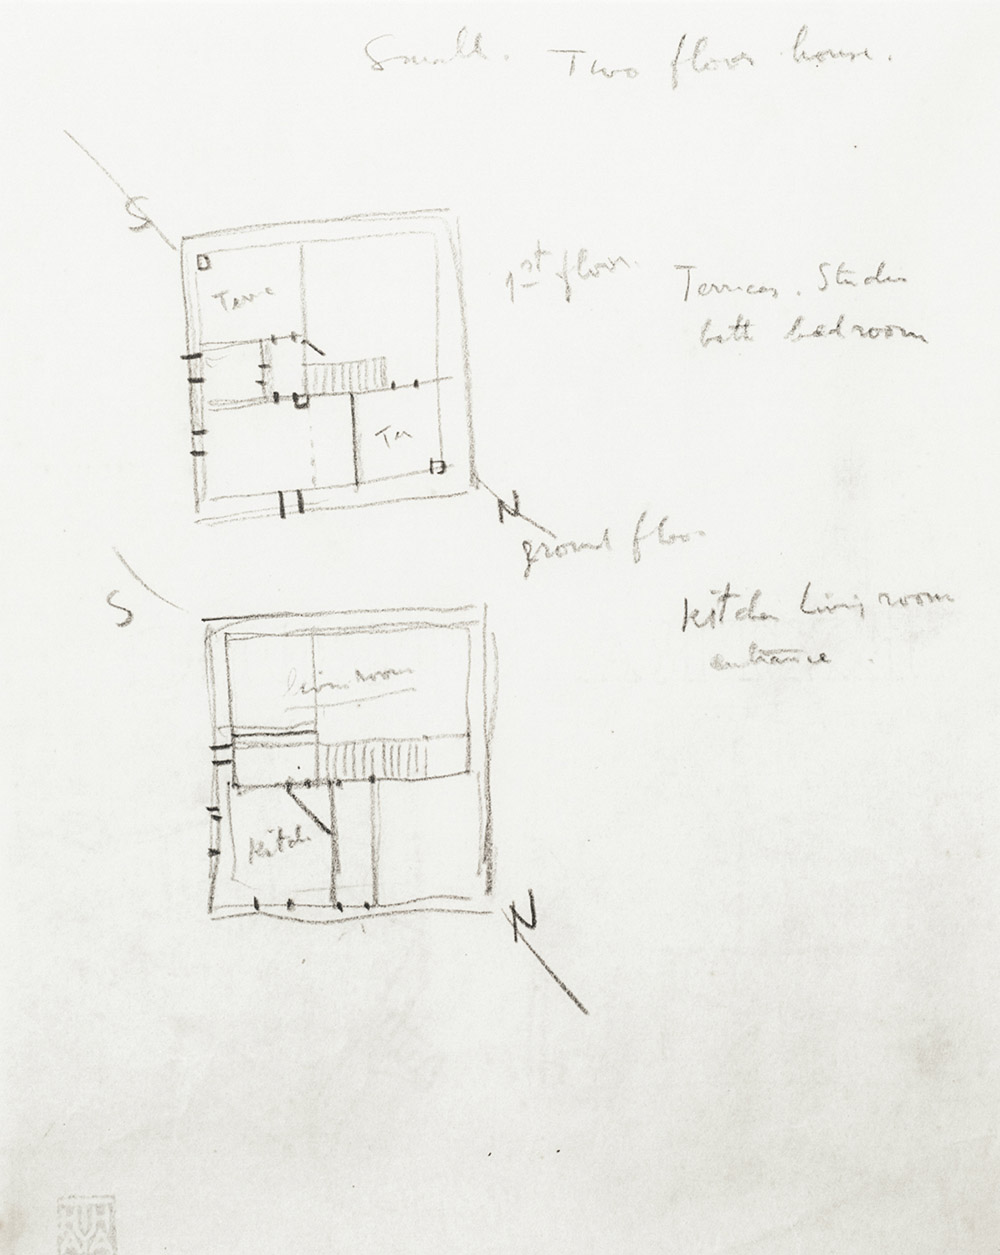 Small. Two floor house.
S
1st floor.
Terraces. Studio
bath bedroom
Terrace
Ter
N
ground floor
S
Kitchen living room
entrance.
living room
Kitch
N